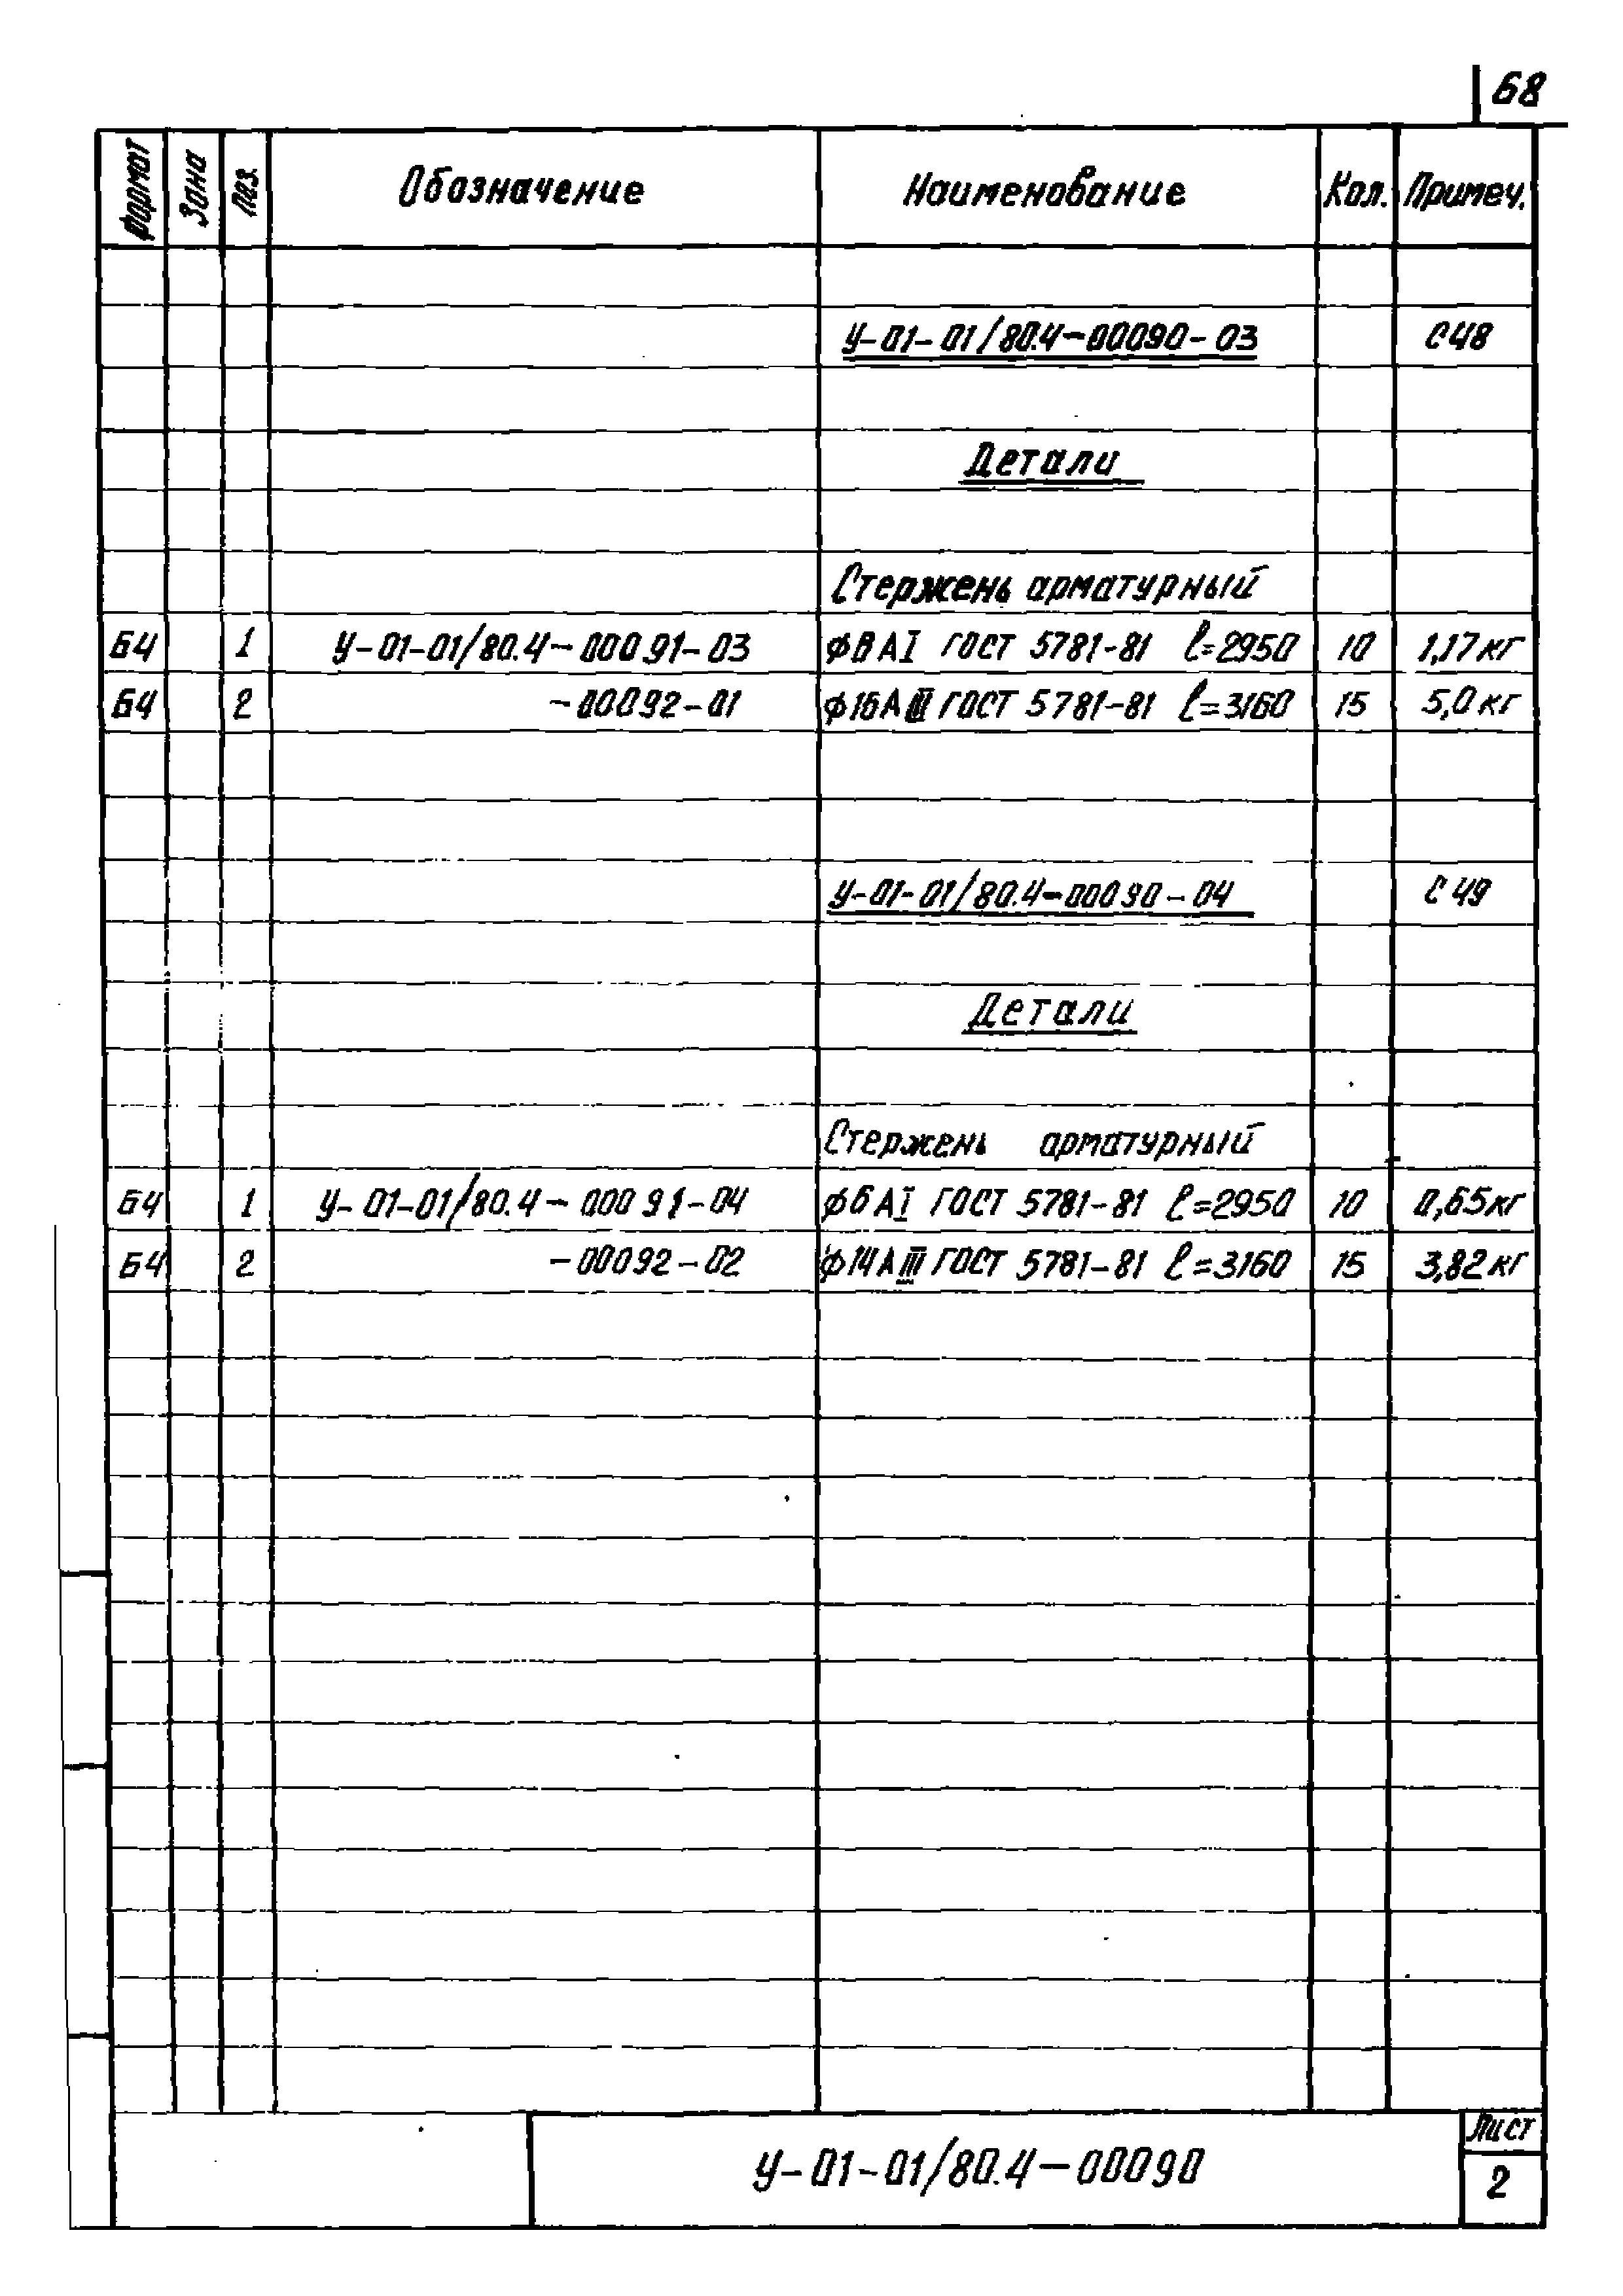 68
Формат Зона Поз. Обозначение Наименование Кол. Примеч.
У-01-01/80.4-00090-03 С48
Детали
Стержень арматурный
Б4 1 У-01-01/80.4-00091-03 ф8АI ГОСТ 5781-81 ℓ=2950 10 1,17кг
Б4 2 -00092-01 ф16АIII ГОСТ 5781-81 ℓ=3160 15 5,0кг
У-01-01/80.4-00090-04 С49
Детали
Стержень арматурный
Б4 1 У-01-01/80.4-00091-04 ф6АI ГОСТ 5781-81 ℓ=2950 10 0,65кг
Б4 2 -00092-02 ф14АIII ГОСТ 5781-81 ℓ=3160 15 3,82кг
У-01-01/80.4-00090
Лист
2